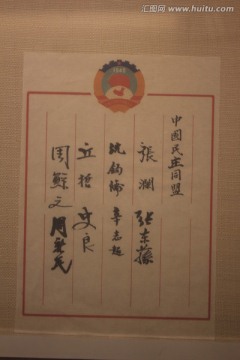 汇图网 www.huitu.com
1949
中国民主同盟
張瀾 张东蓀
沈鈞儒 辛志超
丘哲 史良
周鯨文 周新民